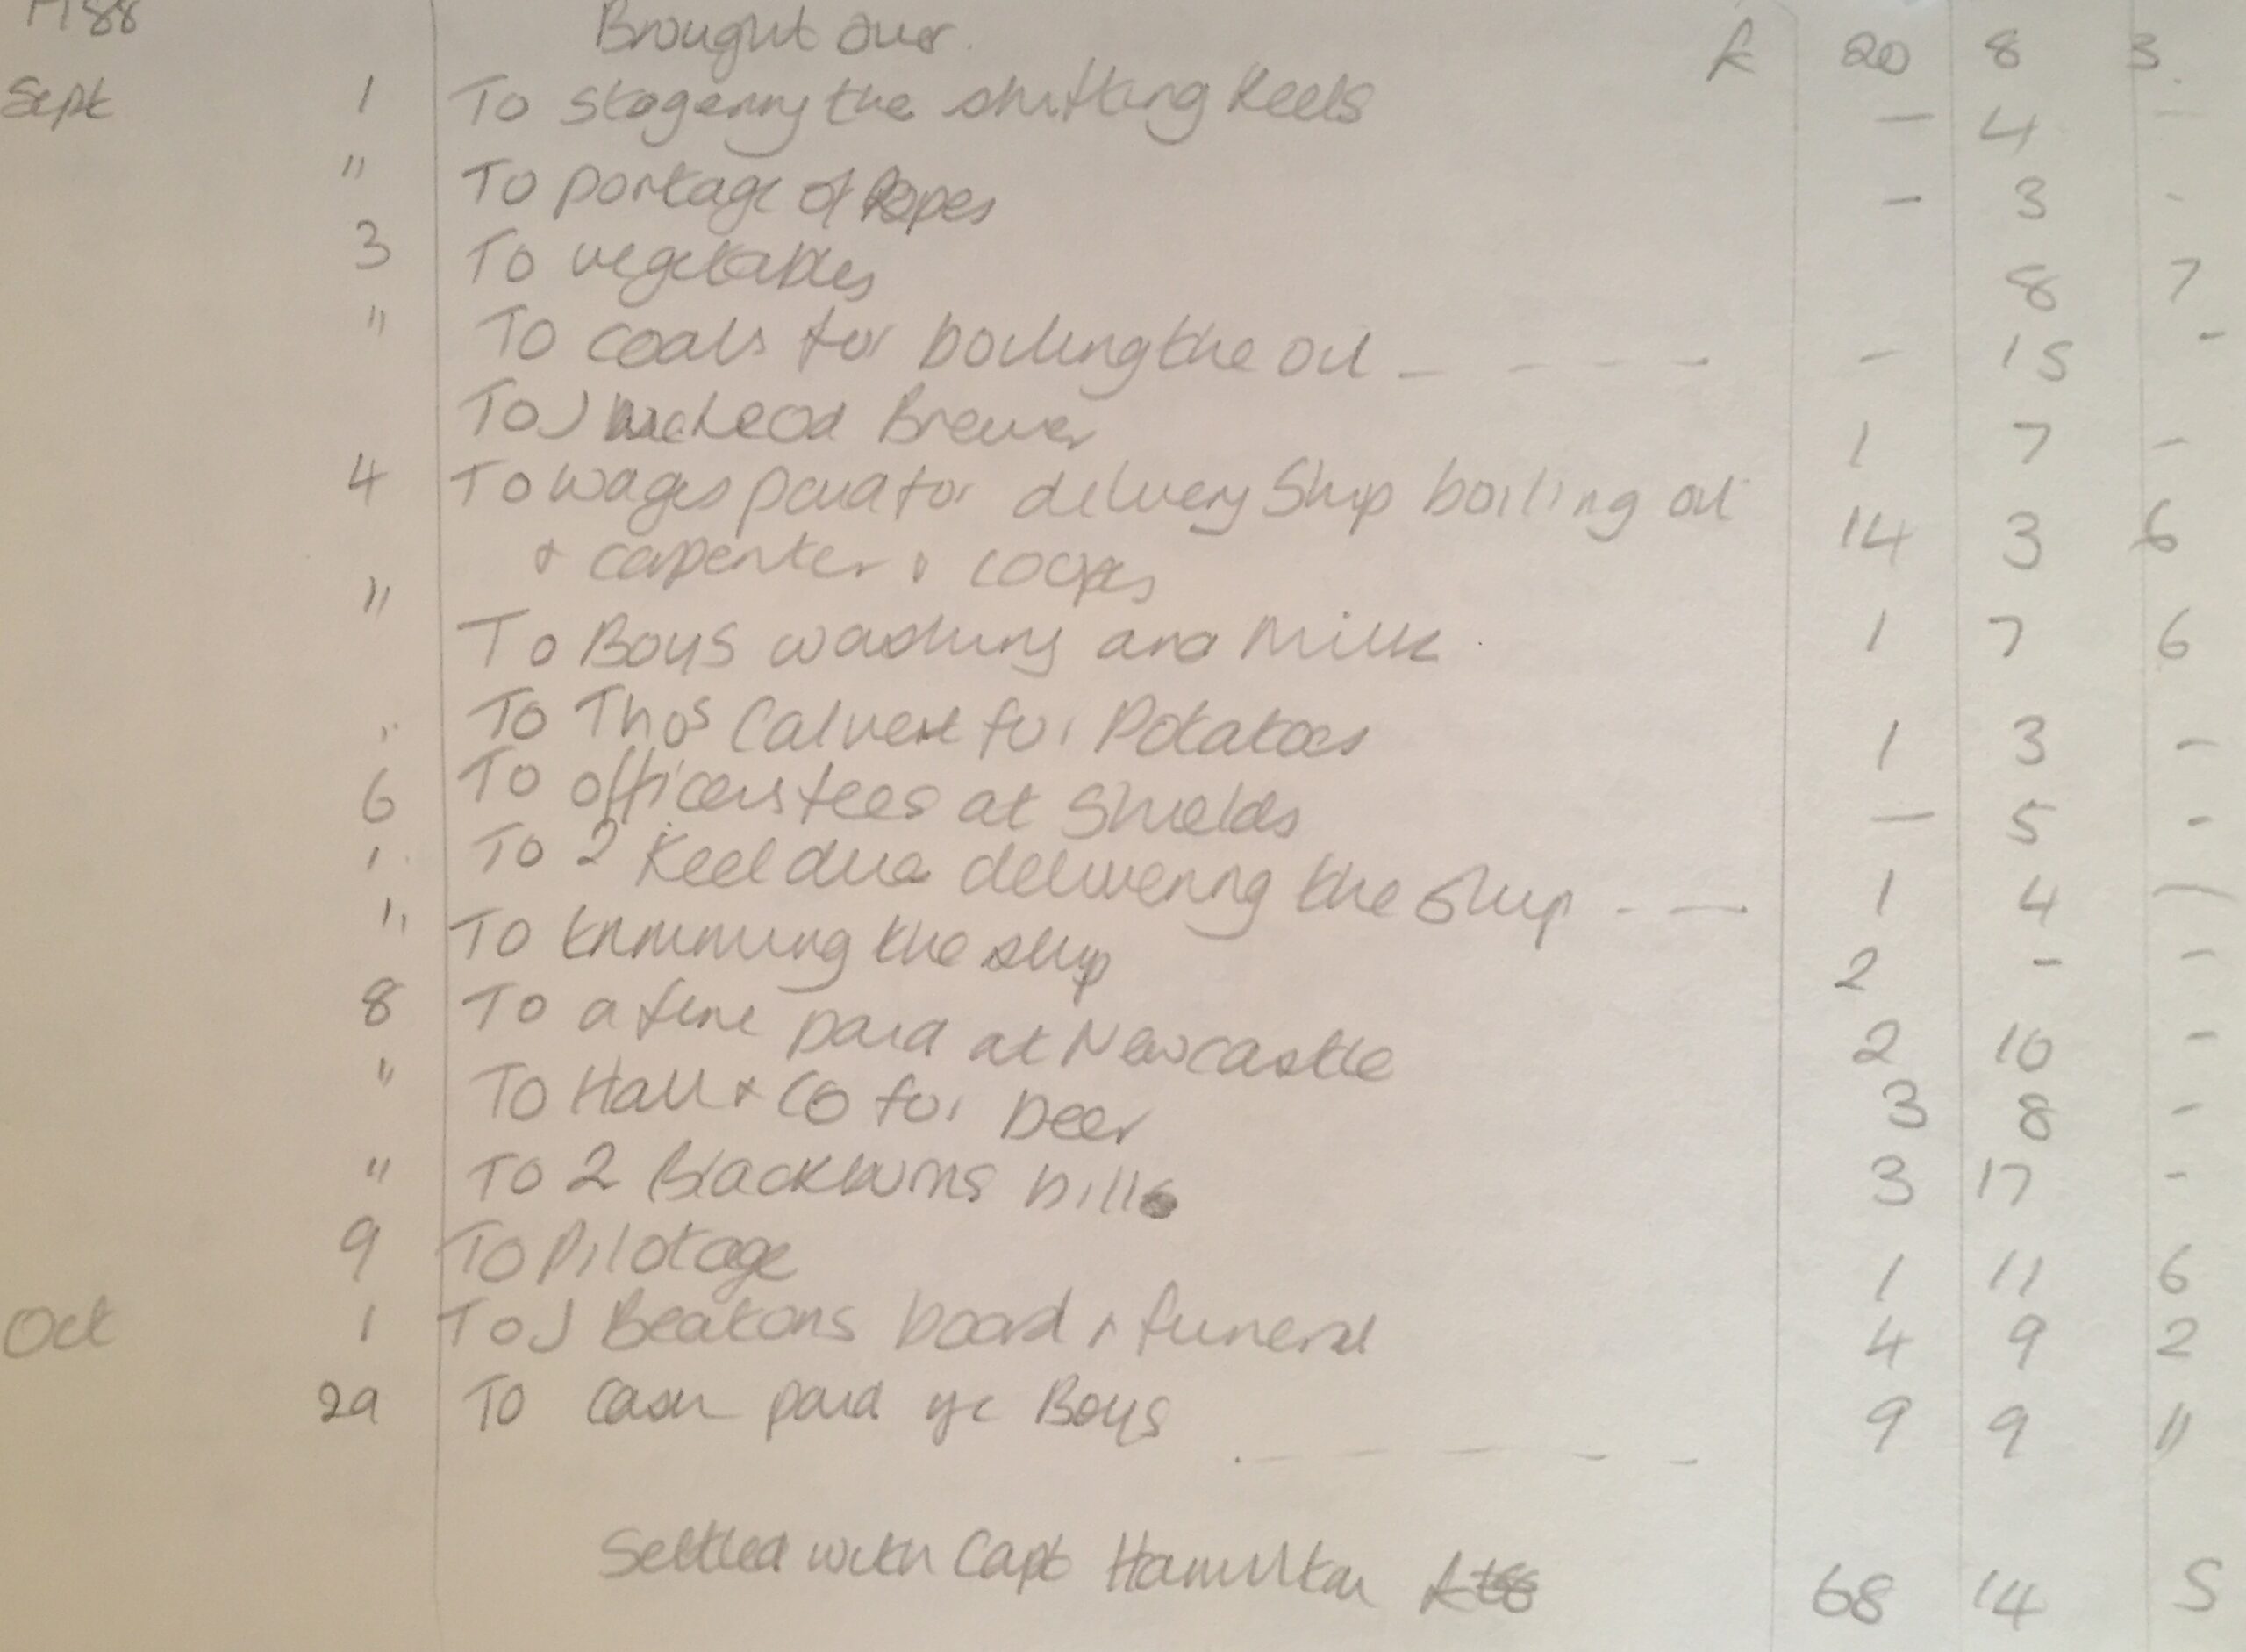 1788 Brought over £ 20 8 3
Sept 1 To the shifting Keels - 4 -
" To portage of Ropes - 3 -
3 To vegetables 8 7
" To coals for boiling the oil - - - - - 15 -
To J MacLeod Brewer 1 7 -
4 To wages paid for delivery Ship boiling oil 14 3 6
& carpenter &
" To Boys washing and Milk. 1 7 6
" To Thos Calvert for Potatoes 1 3 -
6 To officers fees at Shields - 5 -
" To 2 Keel due delivering the Ship - - 1 4 -
" To trimming the ship 2 - -
8 To a fine paid at Newcastle 2 10 -
" To Hall & Co for beer 3 8 -
" To 2 Blackburns bills 3 17 -
9 To Pilotage 1 11 6
Oct 1 To J Beatons board & funeral 4 9 2
29 To cash paid ye Boys - - - - - 9 9 11
Settled with Capt Hamilton £ 68 14 5